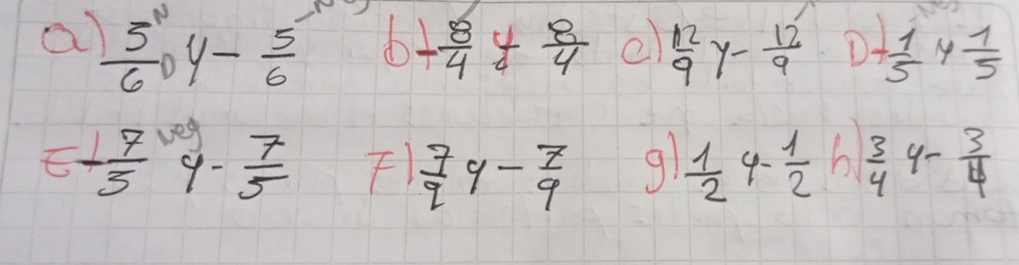 a) 5/6 y - 5/6 b) - 8/4 y 8/4 c) 12/9 y - 12/9 D) - 1/5 y 1/5
E) - 7/5 neg y - 7/5 F) 7/9 y - 7/9 g) 1/2 y - 1/2 h) 3/4 y - 3/4